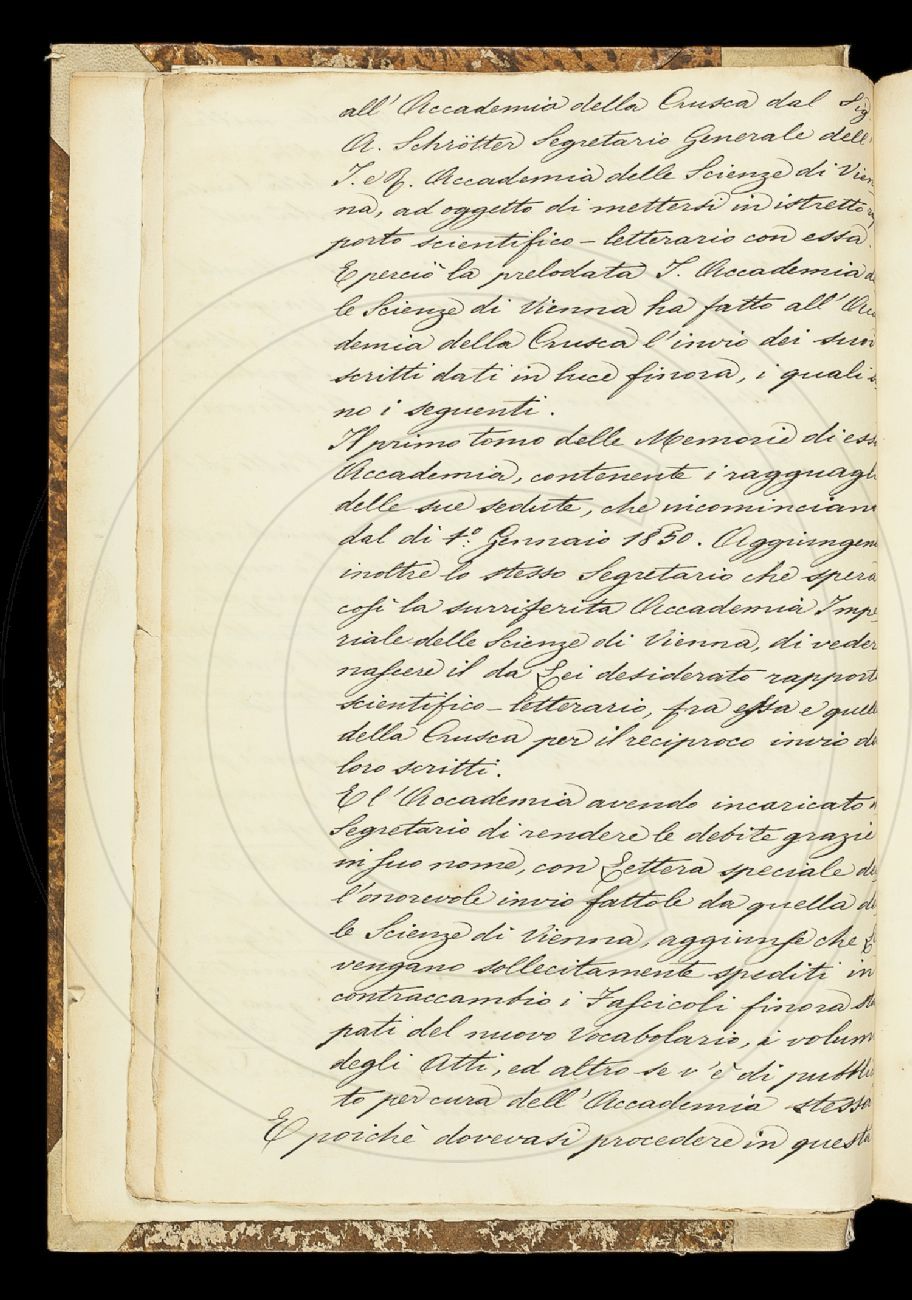 all' Accademia della Crusca dal Sig.
A. Schrötter Segretario Generale dell'
I. e R. Accademia delle Scienze di Vien-
na, ad oggetto di mettersi in istretto
porto scientifico - letterario con essa.
E perciò la prelodata I. Accademia
le Scienze di Vienna ha fatto all' Acca
demia della Crusca l'invio dei suoi
scritti dati in luce finora, i quali so
no i seguenti.
Il primo tomo delle Memorie di essa
Accademia, contenente i ragguagli
delle sue sedute, che incominciano
dal dì 1.° Gennaio 1850. Aggiungendo
inoltre lo stesso Segretario che spera
così la surriferita Accademia Impe-
riale delle Scienze di Vienna, di veder
nascere il da Lei desiderato rapporto
scientifico - letterario, fra essa e quella
della Crusca per il reciproco invio de
loro scritti.
E l'Accademia avendo incaricato
Segretario di rendere le debite grazie
in suo nome, con Lettera speciale de
l'onorevole invio fattole da quella de
le Scienze di Vienna, aggiunse che
vengano sollecitamente spediti in
contraccambio i Fascicoli finora sta
pati del nuovo Vocabolario, i volumi
degli Atti, ed altro se v'è di pubbli
to per cura dell'Accademia stessa
E poichè dovevasi procedere in questa